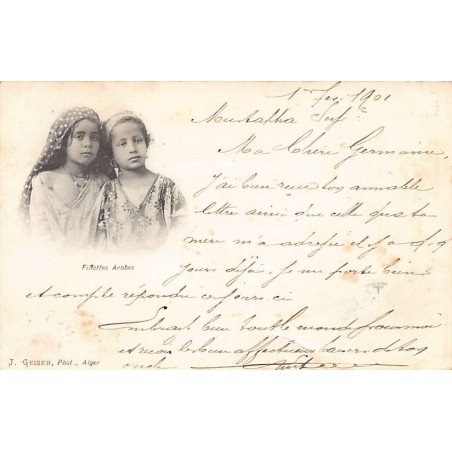 1 Fev 1901
Mustapha Supre
Ma Chère Germaine,
J'ai bien reçu ton aimable
lettre ainsi que celle que ta
mère m'a adressée il y a
jours déjà. Je me porte bien
et compte répondre ces jours-ci
Embrasse bien tout le monde pour moi
et reçois les bien affectueux baisers de ton
oncle
Fillettes Arabes
J. GEISER, Phot., Alger